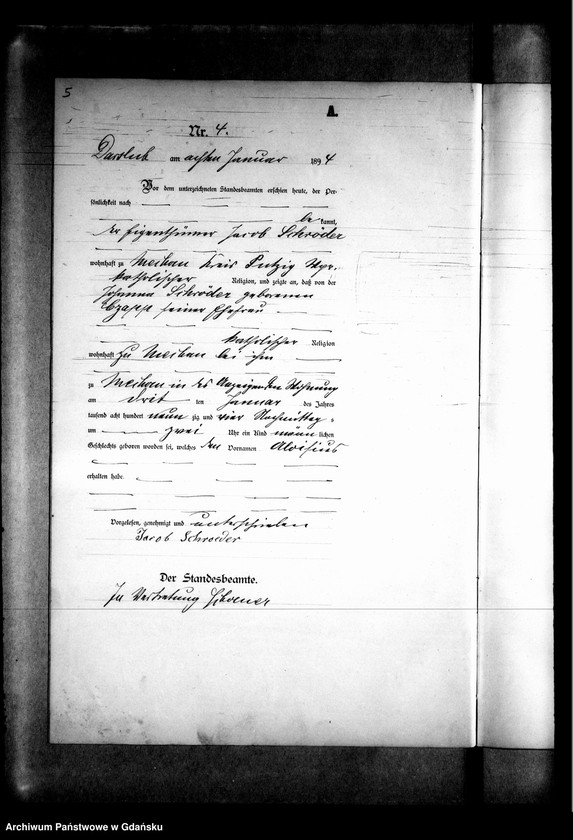 5
A.
Nr. 4.
Darslub am achten Januar 1894
Vor dem unterzeichneten Standesbeamten erschien heute, der Per-
sönlichkeit nach
be kannt,
der Eigenthümer Jacob Schröder
wohnhaft zu Mechau Kreis Putzig Wpr.
katholischer Religion, und zeigte an, daß von der
Johanna Schröder geborenen
Czapp seiner Ehefrau
katholischer Religion
wohnhaft zu Mechau bei ihm
zu Mechau in des Anzeigenden Wohnung
am drit ten Januar des Jahres
tausend acht hundert neun zig und vier Nachmittag s
um zwei Uhr ein Kind männ lichen
Geschlechts geboren worden sei, welches den Vornamen Aloisius
erhalten habe.
Vorgelesen, genehmigt und unterschrieben
Jacob Schroeder
Der Standesbeamte.
In Vertretung
Archiwum Państwowe w Gdańsku